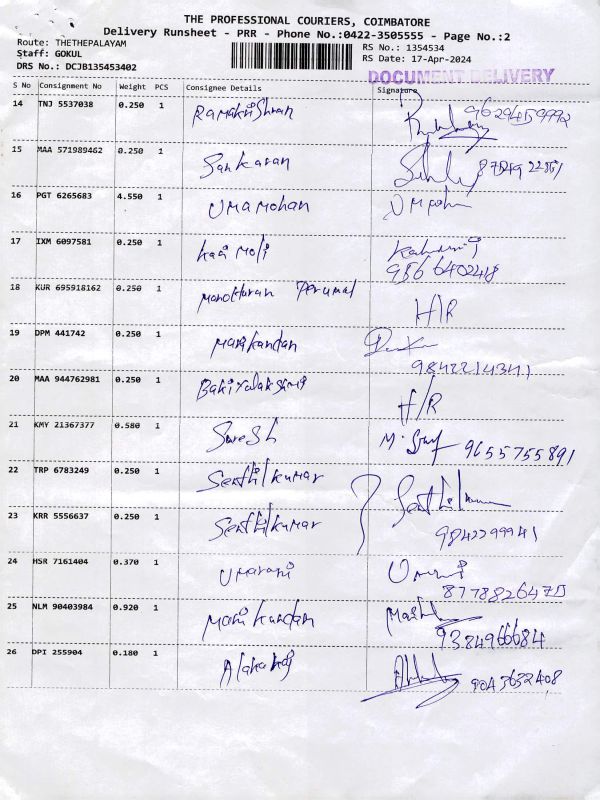 THE PROFESSIONAL COURIERS, COIMBATORE
Delivery Runsheet - PRR - Phone No.:0422-3505555 - Page No.:2
Route: THETHEPALAYAM
Staff: GOKUL
DRS No.: DCJB135453402
RS No.: 1354534
RS Date: 17-Apr-2024
DOCUMENT DELIVERY
S No Consignment No Weight PCS Consignee Details Signature
14 TNJ 5537038 0.250 1 Ramakrishnan 9629459992
15 MAA 571989462 0.250 1 Sankaran
16 PGT 6265683 4.550 1 Uma Mohan
17 IXM 6097581 0.250 1 Kani Moli
9566402418
18 KUR 695918162 0.250 1 Manoharan Perumal H/R
19 DPM 441742 0.250 1 Manikandan
9842214341
20 MAA 944762981 0.250 1 Bakiyalakshmi H/R
21 KMY 21367377 0.580 1 Suresh 9655755891
22 TRP 6783249 0.250 1 Senthilkumar Senthilkumar
23 KRR 5556637 0.250 1 Senthilkumar 9842299941
24 HSR 7161404 0.370 1 Umarani
8778826475
25 NLM 90403984 0.920 1 Mani kandan
9384966684
26 DPI 255904 0.180 1 Alakaraj 9043632408